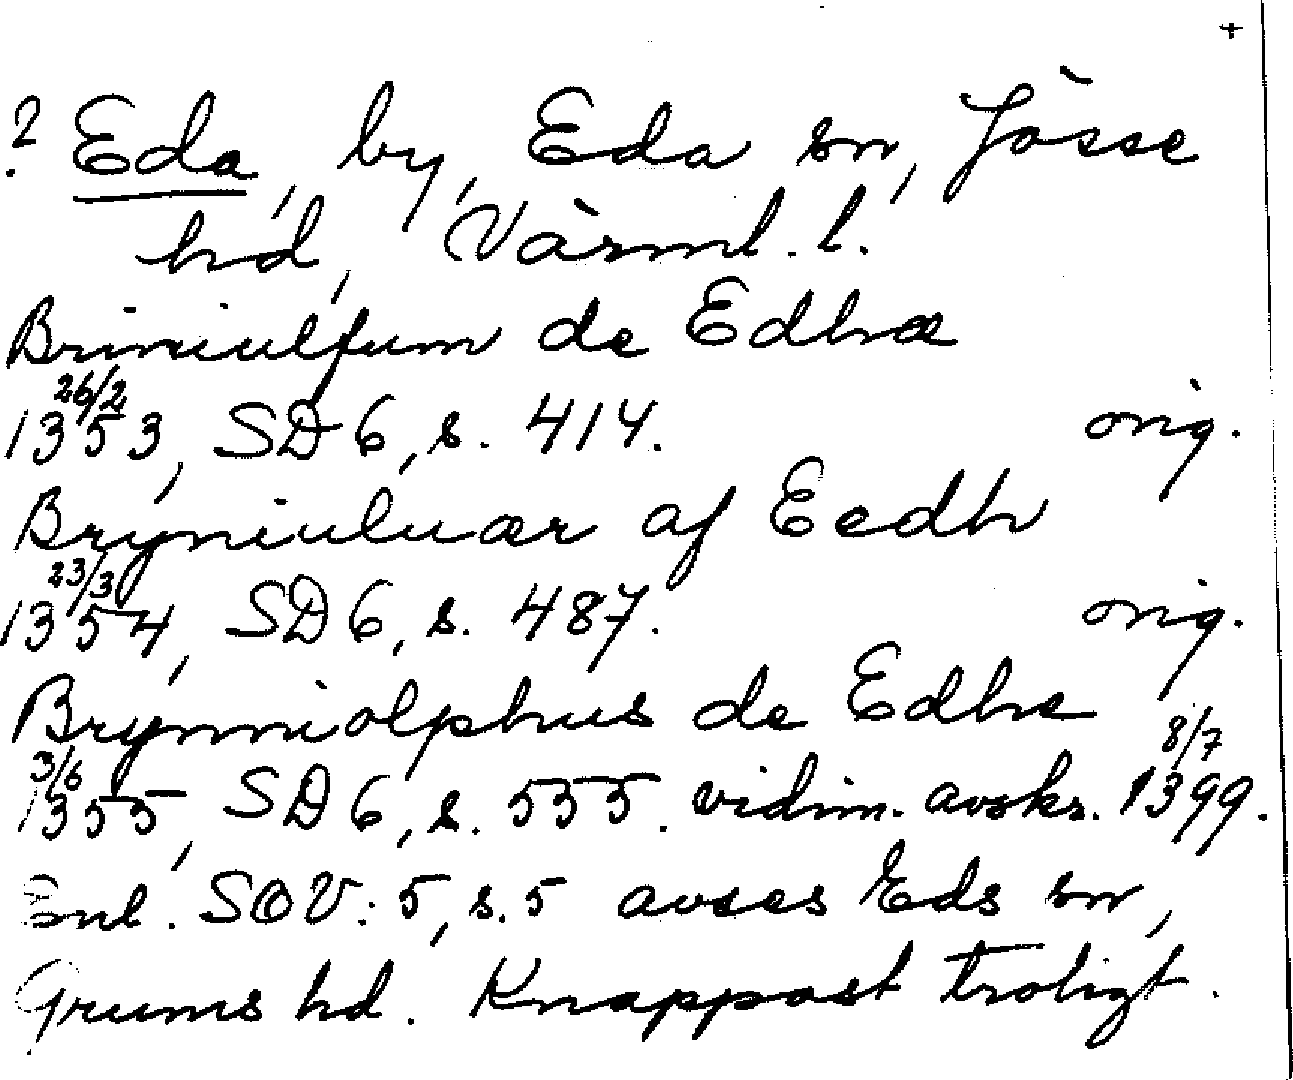 +
? Eda, by, Eda sn, Jösse
hd, Värml. l.
Briniulfum de Edhæ
26/2 1353, SD 6, s. 414. orig.
Bryniuluær af Eedh
23/3 1354, SD 6, s. 487. orig.
Brynniolphus de Edhe
3/6 1355, SD 6, s. 535. vidim. avskr. 8/7 1399.
Enl. SOV: 5, s. 5 avses Eds sn,
Grums hd. Knappast troligt.